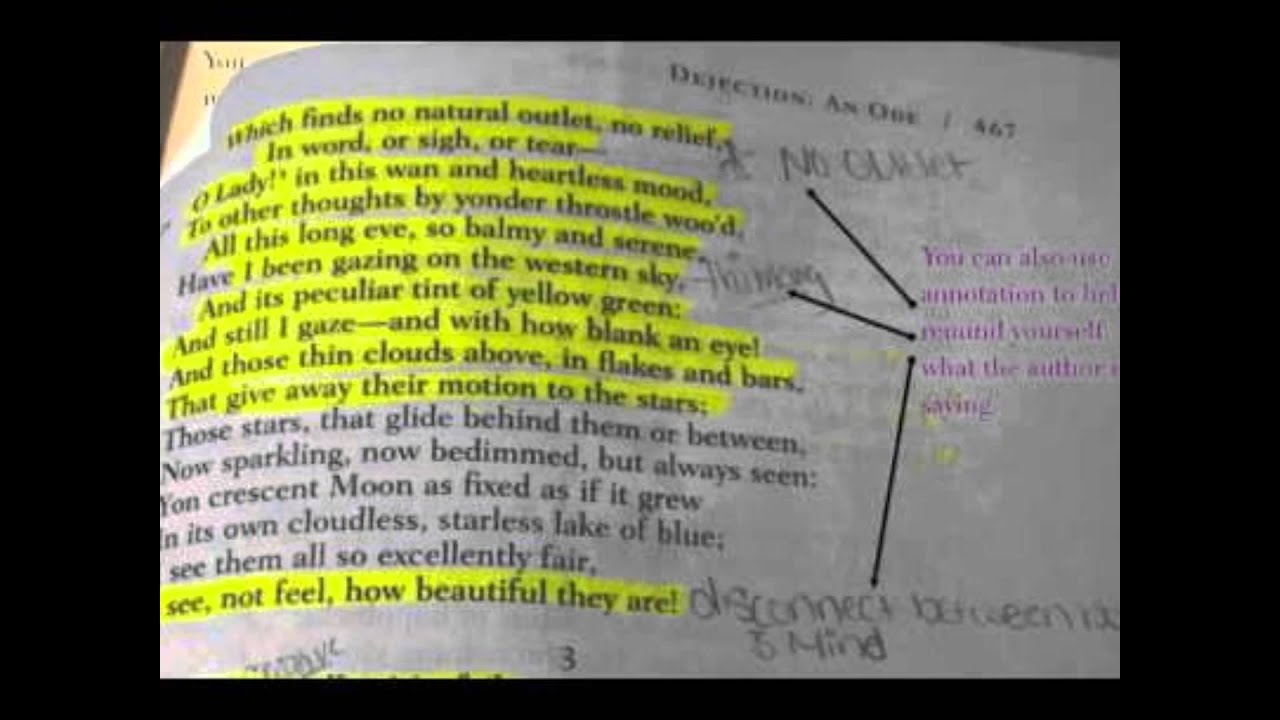 You
DEJECTION: AN ODE / 467
Which finds no natural outlet, no relief,
In word, or sigh, or tear—
No Outlet
O Lady! in this wan and heartless mood,
To other thoughts by yonder throstle woo'd,
All this long eve, so balmy and serene,
Have I been gazing on the western sky,
Thinking
And its peculiar tint of yellow green:
And still I gaze—and with how blank an eye!
And those thin clouds above, in flakes and bars,
That give away their motion to the stars;
Those stars, that glide behind them or between,
Now sparkling, now bedimmed, but always seen:
Yon crescent Moon as fixed as if it grew
in its own cloudless, starless lake of blue;
see them all so excellently fair,
see, not feel, how beautiful they are!
disconnect between
& Mind
3
You can also use
annotation to hel
remind yourself
what the author i
saying